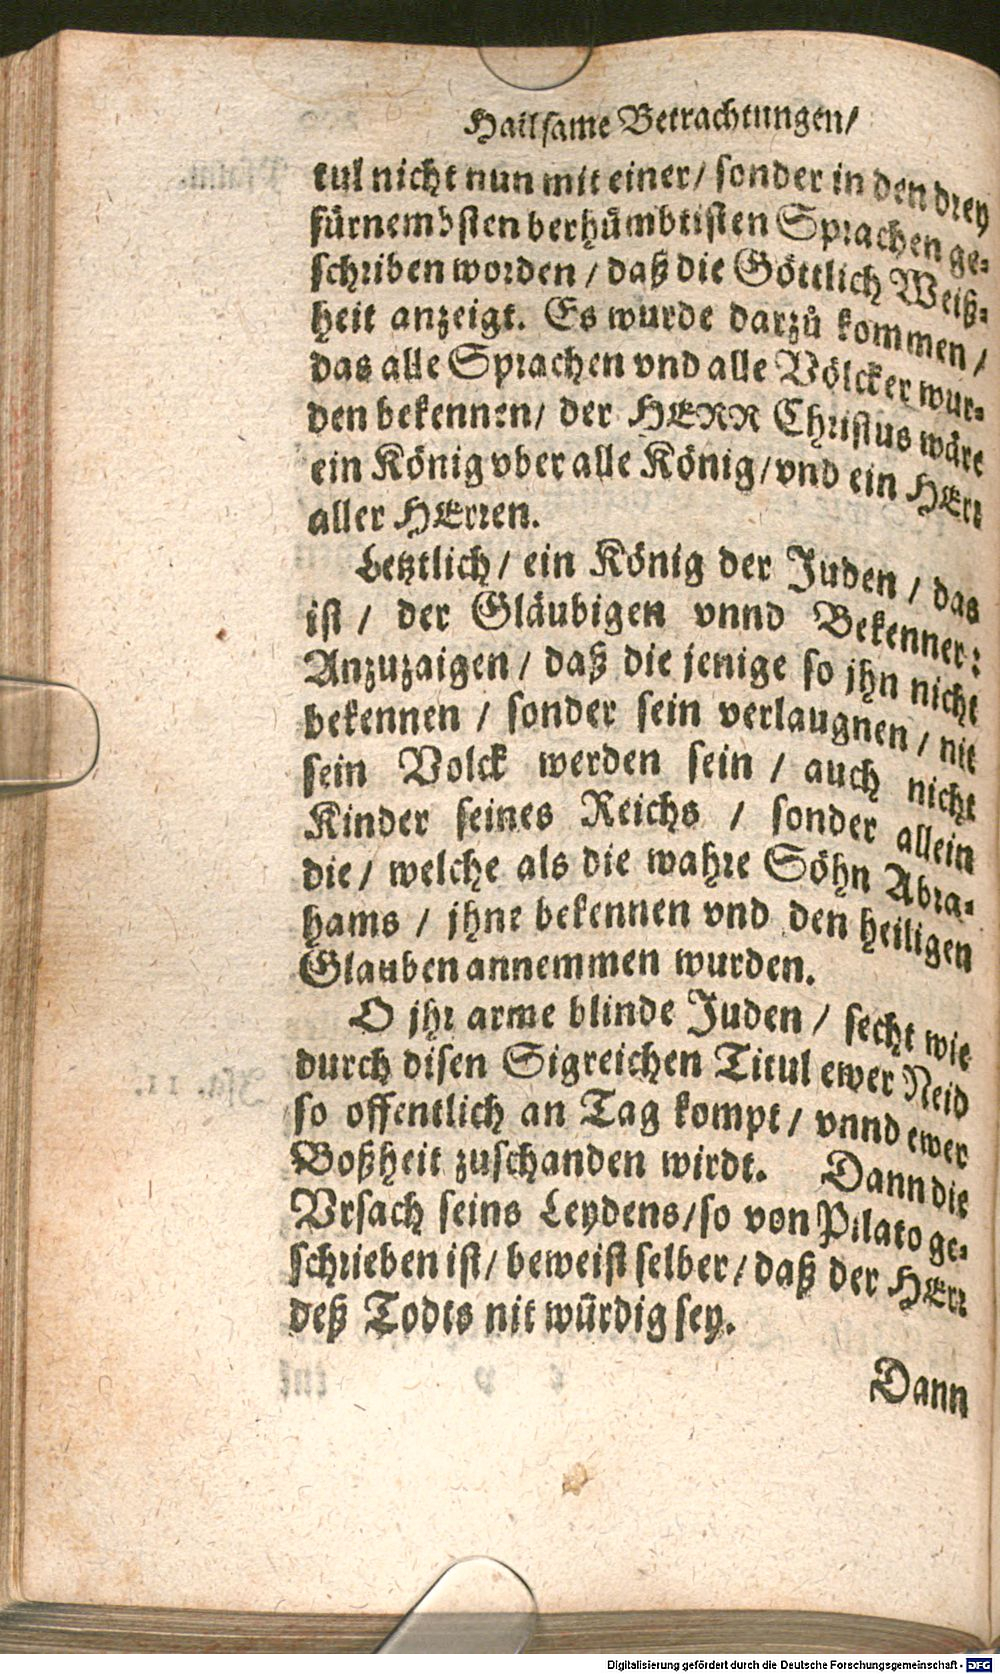 Hailsame Betrachtungen/
tul nicht nun mit einer/ sonder in den drey
fürnembsten berhůmbtisten Sprachen ge-
schriben worden / daß die Göttlich Weiß-
heit anzeigt. Es wurde darzů kommen /
das alle Sprachen vnd alle Völcker wur-
den bekennen/ der HERR Christus wäre
ein König vber alle König/ vnd ein HErr
aller HErren.
Letztlich / ein König der Juden / das
ist / der Gläubigen vnnd Bekenner:
Anzuzaigen / daß die jenige so jhn nicht
bekennen / sonder sein verlaugnen / nit
sein Volck werden sein / auch nicht
Kinder seines Reichs / sonder allein
die / welche als die wahre Söhn Abra-
hams / jhne bekennen vnd den heiligen
Glauben annemmen wurden.
O jhr arme blinde Juden / secht wie
durch disen Sigreichen Titul ewer Neid
so offentlich an Tag kompt / vnnd ewer
Boßheit zuschanden wirdt. Dann die
Vrsach seins Leydens/ so von Pilato ge-
schrieben ist/ beweist selber / daß der HErr
deß Todts nit würdig sey.
Dann
Digitalisierung gefördert durch die Deutsche Forschungsgemeinschaft - DFG